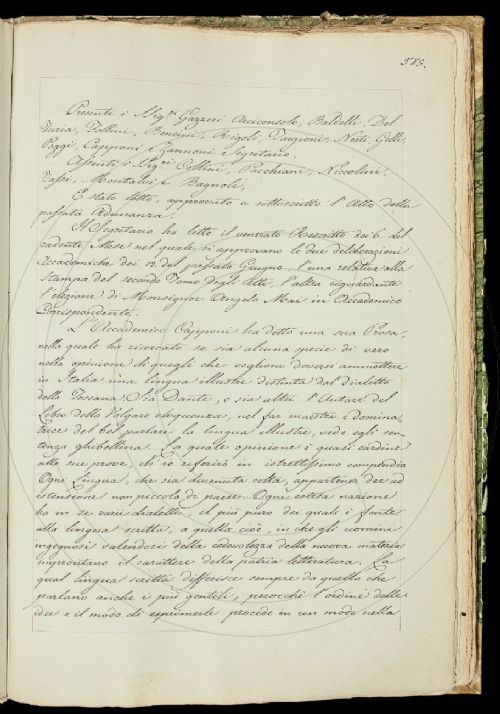 585.
Presenti i Sig.ri Gazzeri Arciconsolo, Baldelli, Del
Furia, Follini, Bencini, Rigoli, Targioni, Nesti, Gelli,
Poggi, Capponi e Zannoni Segretario.
Assenti i Sig.ri Collini, Pacchiani, Niccolini,
Tassi, Montalvi e Bagnoli.
È stato letto, approvato e sottoscritto l'Atto della
passata Adunanza.
Il Segretario ha letto il venerato Rescritto dei 6. del
cadente Mese nel quale si approvano le due deliberazioni
Accademiche dei 12. del passato Giugno l'una relativa alla
stampa del secondo Tomo degli Atti, l'altra riguardante
l'elezione di Monsignor Angelo Mai in Accademico
Corrispondente.
L'Accademico Capponi ha detto una sua Prosa,
nella quale ha ricercato se sia alcuna specie di vero
nella opinione di quegli che vogliono doversi ammettere
in Italia una lingua illustre distinta dal dialetto
della Toscana. Sia Dante, o sia altri l'Autore del
Libro della Volgare eloquenza, nel far maestra e domina-
trice del bel parlare la lingua illustre, vede egli sen-
tenza ghibellina. La quale opinione è quasi cardine
alle sue prove, ch'io riferirò in istrettissimo compendio.
Ogni lingua, che sia divenuta colta, appartener dee ad
estensione non piccola di paese. Ogni cotità nazione
ha in se varii dialetti, il più puro dei quali è fonte
alla lingua scritta, a quella cioè, in che gli uomini
ingegnosi valendosi della cedevolezza della nuova materia
improntano il carattere della patria letteratura. La
qual lingua scritta differisce sempre da quella che
parlano anche i più gentili, perocchè l'ordine delle
idee e il modo di esprimerle procede in un modo nella